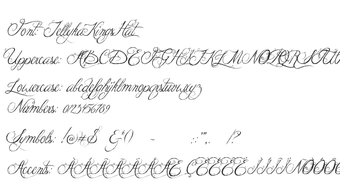 Font: JellykaKingsHat
Uppercase: ABCDEFGHIJKLMNOPQRSTUV
Lowercase: abcdefghijklmnopqrstuvwxyz
Numbers: 0123456789
Symbols: !@#$ &*() - :;"'., /?
Accent: ÀÁÂÃÄÅÆ ÇÈÉÊË ÌÍÎÏÑÒÓÔ